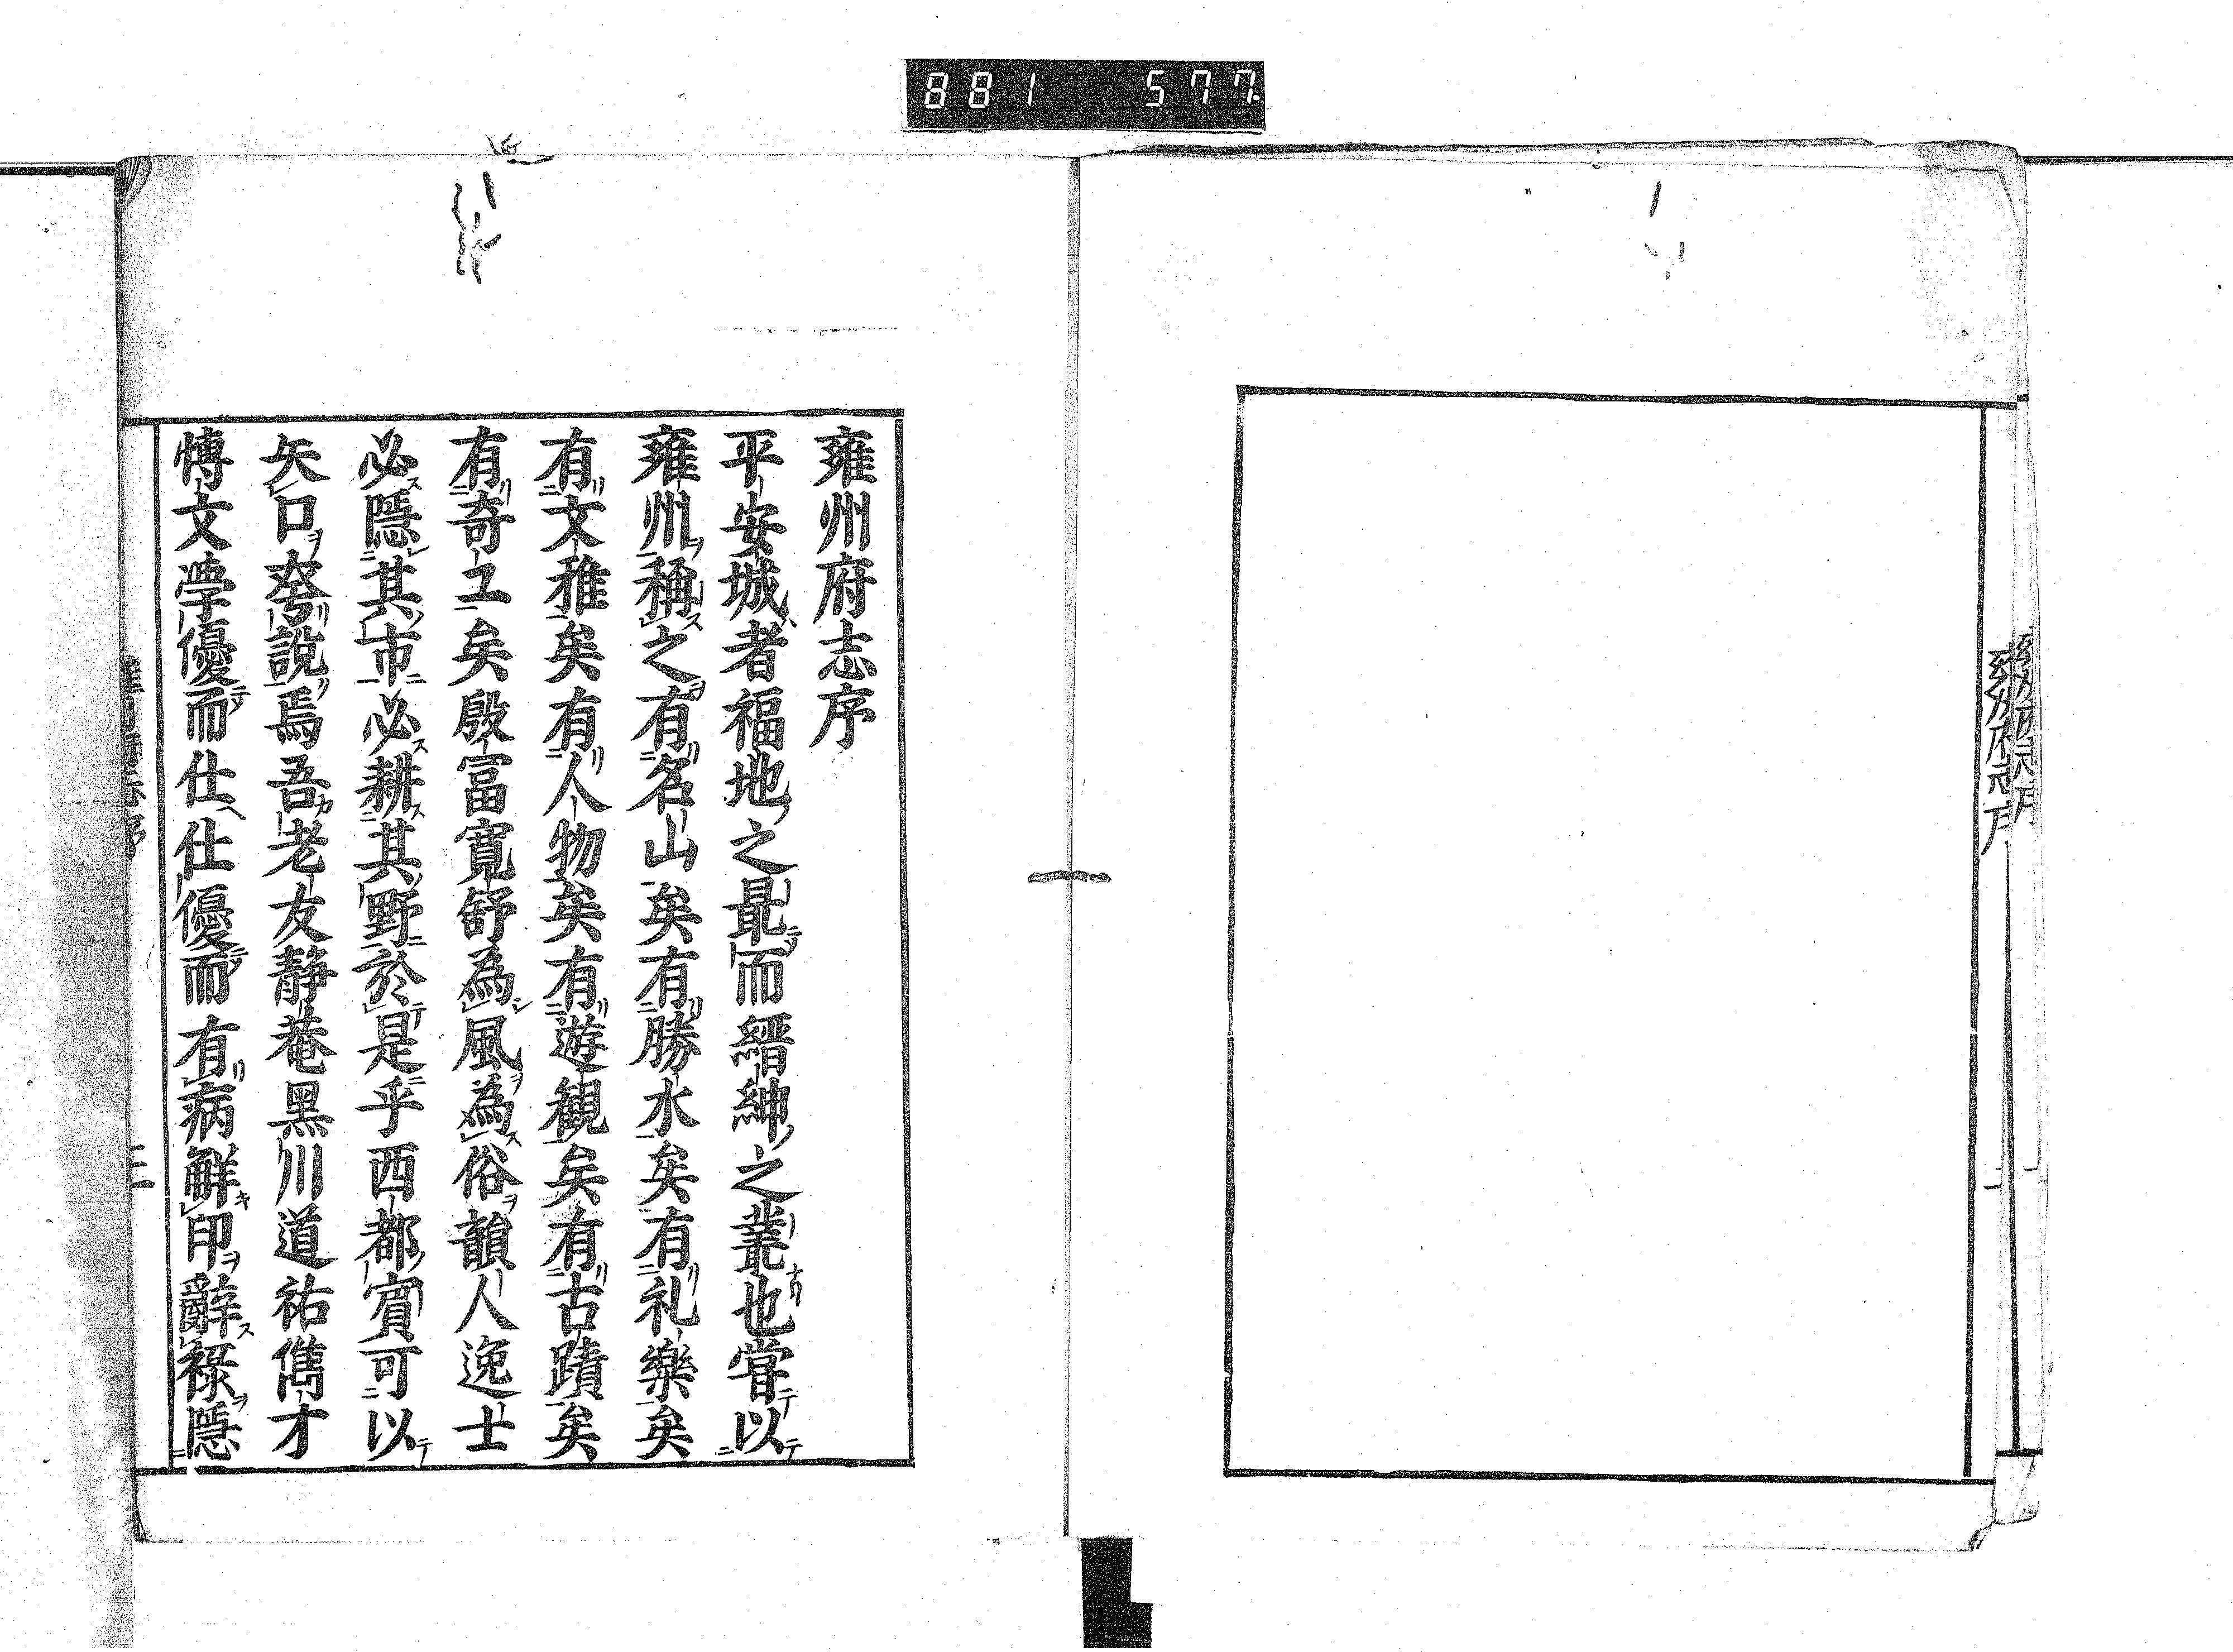 881 577
雍州府志序
平安城者福地之最而縉紳之叢也嘗以
雍州稱之有名山矣有勝水矣有礼樂矣
有文雅矣有人物矣有遊観矣有古蹟矣
有奇工矣殷冨寛舒為風為俗韻人逸士
必隱其市必耕其野於是乎西都賓可以
矢口発說焉吾老友静菴黒川道祐儁才
愽文学優而仕仕優而有病解印辭禄隱